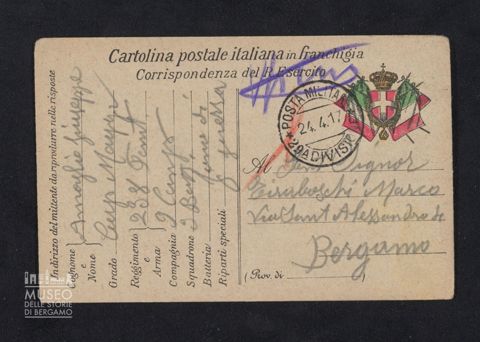 Cartolina postale italiana in franchigia
Corrispondenza del R. Esercito
POSTA MILITARE
24.4.17
29A DIVISIONE
Indirizzo del mittente da riprodurre nella risposta
Cognome
e
Nome
Grado Cap Maggr
Reggimento 238
e
Arma Fant
Compagnia 9 Comp
Squadrone 3
Batteria
Riparti speciali
Zona di
guerra
Al Signor
Tiraboschi Marco
Via Sant Alessandro
Bergamo
(Prov. di )
MUSEO
DELLE STORIE
DI BERGAMO